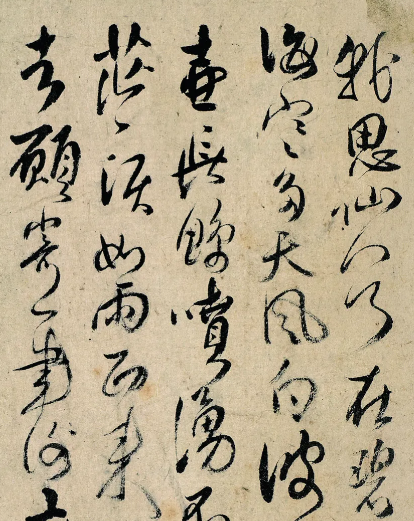 我思仙人乃在碧
海寒多天風白波
壺長鯨噴湧不
茫〻淚如雨西来
去願寄一書謝